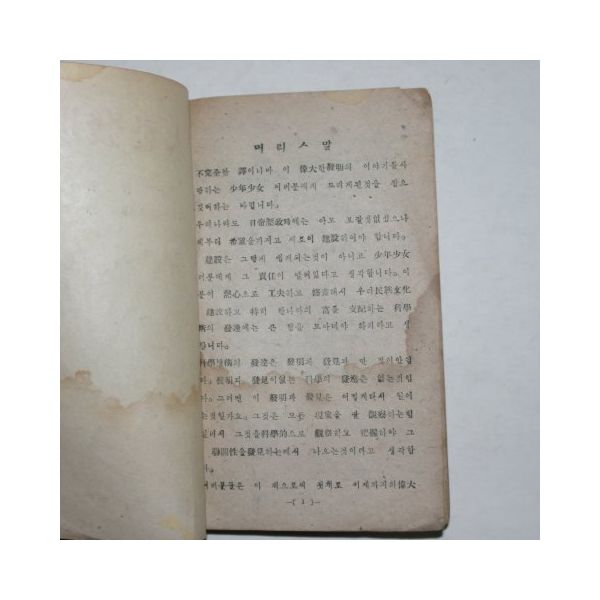 머리ㅅ말
不完全한 譯이나마 이 偉大한 發明의 이야기를 사
하는 少年少女 여러분에게 드리게된것을 참으
하는 바입니다.
우리나라도 日帝壓政時에는 아모 보잘것없섯으나
제부터 希望을가지고 새로히 建設하여야 합니다.
建設은 그렇게 쉽게되는것이 아니고 少年少女
러분에게 그 責任이 맡겨있다고 생각합니다. 이
분이 熱心으로 工夫하고 修養해서 우리民族文化
建設하고 特히 한나라의 富를 支配하는 科學
術의 發達에는 큰 힘을 모아너야 하리라고 생
합니다.
科學技術의 發達은 發明과 發見과 만 것이안일
다. 發明과 發見이없는 科學의 發達은 없는것입
다. 그러면 이 發明과 發見은 어떻게해서 일어
는것일가요. 그것은 모든 現象을 잘 觀察하는힘
있어서 그것을科學的으로 觀察하고 把握하야 그
聯關性을發見하는데서 나오는것이라고 생각합
다.
여러분들은 이 책으로써 첫재로 이제까지의偉大
—( 1 )—